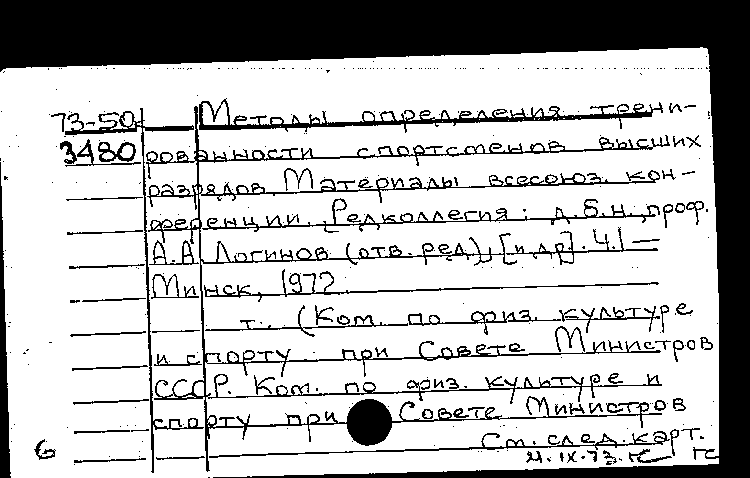 73-50 Методы определения трени-
3480 рованности спортсменов высших
разрядов. Материалы всесоюз. кон-
ференции. [Редколлегия: д.б.н., проф.
А.А. Логинов (отв. ред.), [и др]. Ч.1 —
Минск, 1972.
т. (Ком. по физ. культуре
и спорту при Совете Министров
СССР. Ком. по физ. культуре и
спорту при Совете Министров
См. след. карт.
6 21.IX.73. гс гс